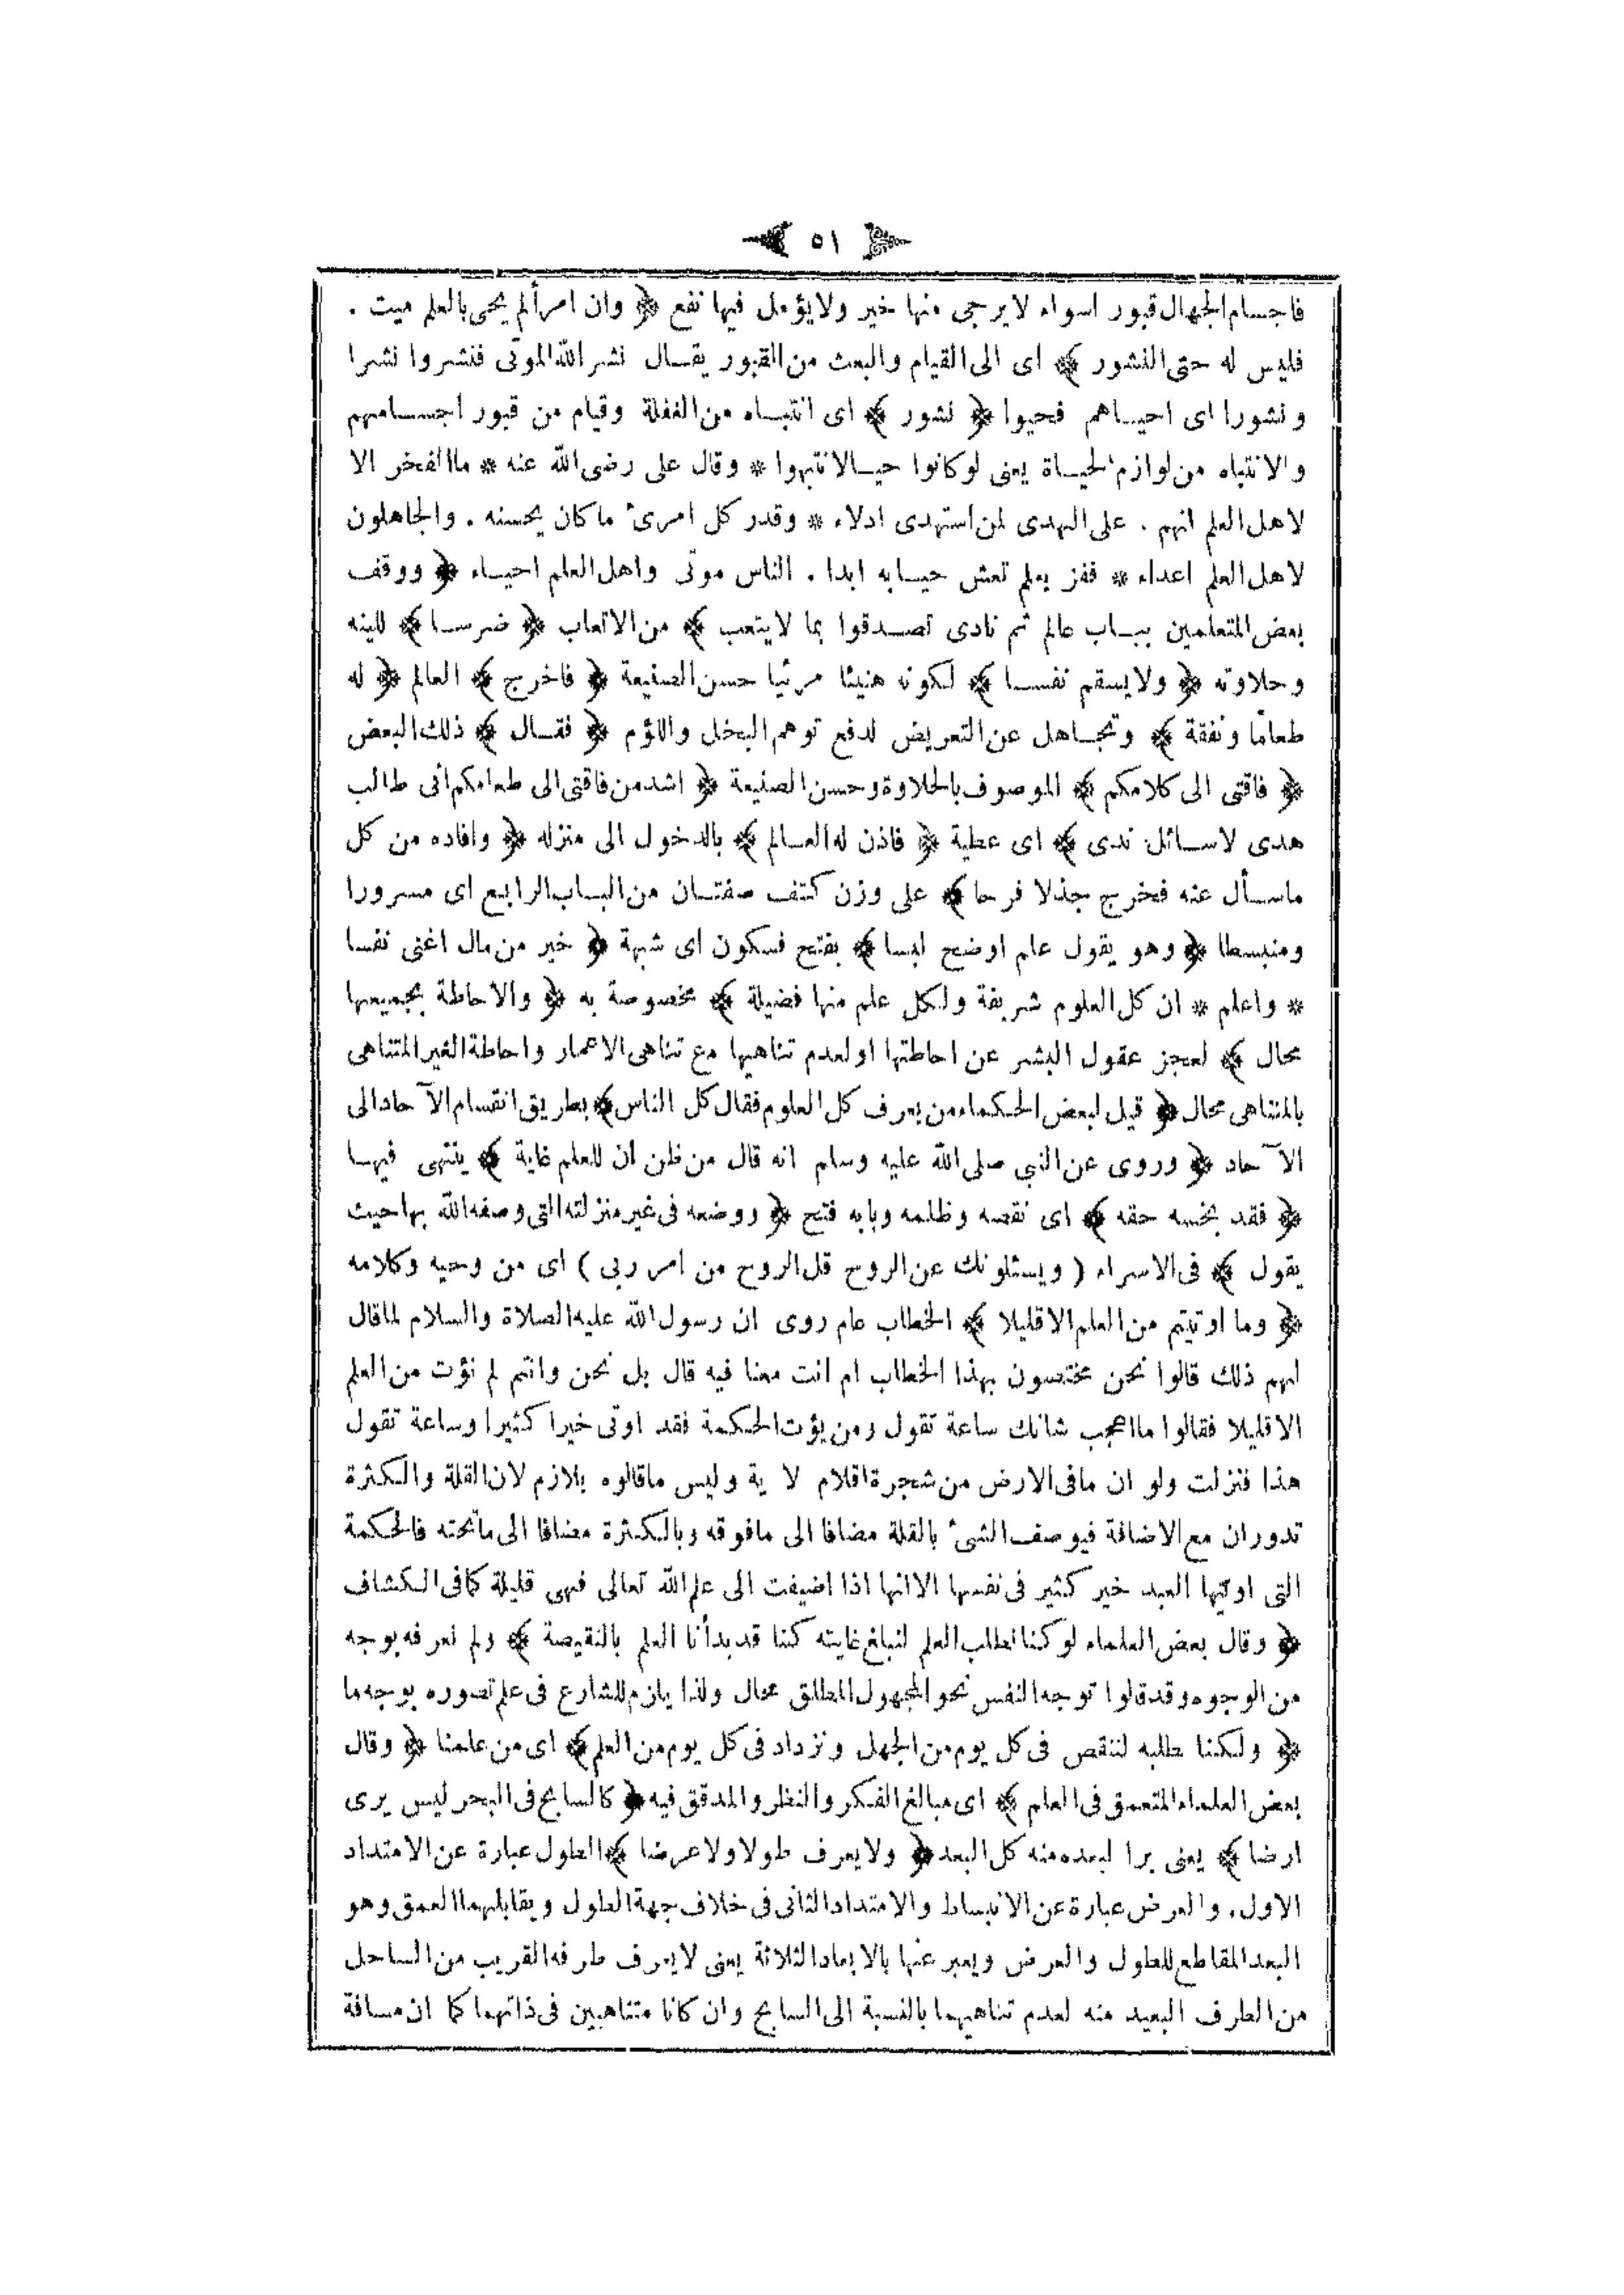 ٥١
فاجسام الجهال قبور اسواء لا يرجى منها خير ولا يؤمل فيها نفع ﴿ وان امرأ لم يحى بالعلم ميت .
فليس له حتى النشور ﴾ اى الى القيام والبعث من القبور يقال نشر الله الموتى فنشروا نشرا
ونشورا اى احياهم فحيوا ﴿ نشور ﴾ اى انتباه من الغفلة وقيام من قبور اجسامهم
والانتباه من لوازم الحياة يعنى لو كانوا حيا لانتبهوا * وقال على رضى الله عنه * ما الفخر الا
لاهل العلم انهم . على الهدى لمن استهدى ادلاء * وقدر كل امرئ ما كان يحسنه . والجاهلون
لاهل العلم اعداء * ففز بعلم تعش حيا به ابدا . الناس موتى واهل العلم احياء ﴿ ووقف
بعض المتعلمين بباب عالم ثم نادى تصدقوا بما لا يتعب ﴾ من الاتعاب ﴿ ضرسا ﴾ للينه
وحلاوته ﴿ ولا يسقم نفسا ﴾ لكونه هنيئا مرئيا حسن الصنيعة ﴿ فاخرج ﴾ العالم ﴿ له
طعاما ونفقة ﴾ وتجاهل عن التعريض لدفع توهم البخل واللؤم ﴿ فقال ﴾ ذلك البعض
﴿ فاقتى الى كلامكم ﴾ الموصوف بالحلاوة وحسن الصنيعة ﴿ اشد من فاقتى الى طعامكم انى طالب
هدى لا سائل ندى ﴾ اى عطية ﴿ فاذن له العالم ﴾ بالدخول الى منزله ﴿ وافاده من كل
ما سأل عنه فخرج جذلا فرحا ﴾ على وزن كتف صفتان من الباب الرابع اى مسرورا
ومنبسطا ﴿ وهو يقول علم اوضح لبسا ﴾ بفتح فسكون اى شبهة ﴿ خير من مال اغنى نفسا
* واعلم * ان كل العلوم شريفة ولكل علم منها فضيلة ﴾ مخصوصة به ﴿ والاحاطة بجميعها
محال ﴾ لعجز عقول البشر عن احاطتها او لعدم تناهيها مع تناهى الاعمار واحاطة الغير المتناهى
بالمتناهى محال ﴿ قيل لبعض الحكماء من يعرف كل العلوم فقال كل الناس ﴾ بطريق انقسام الآحاد الى
الآحاد ﴿ وروى عن النبي صلى الله عليه وسلم انه قال من ظن ان للعلم غاية ﴾ ينتهى فيها
﴿ فقد بخسه حقه ﴾ اى نقصه وظلمه وبابه فتح ﴿ ووضعه فى غير منزلته التى وصفه الله بها حيث
يقول ﴾ فى الاسراء ( ويسئلونك عن الروح قل الروح من امر ربى ) اى من وحيه وكلامه
﴿ وما اوتيتم من العلم الا قليلا ﴾ الخطاب عام روى ان رسول الله عليه الصلاة والسلام لما قال
لهم ذلك قالوا نحن مختصون بهذا الخطاب ام انت معنا فيه قال بل نحن وانتم لم نؤت من العلم
الا قليلا فقالوا ما اعجب شانك ساعة تقول ومن يؤت الحكمة فقد اوتى خيرا كثيرا وساعة تقول
هذا فنزلت ولو ان ما فى الارض من شجرة اقلام لاية وليس ما قالوه بلازم لان القلة والكثرة
تدوران مع الاضافة فيوصف الشئ بالقلة مضافا الى ما فوقه وبالكثرة مضافا الى ما تحته فالحكمة
التى اوتيها العبد خير كثير فى نفسها الا انها اذا اضيفت الى علم الله تعالى فهى قليلة كما فى الكشاف
﴿ وقال بعض العلماء لو كنا نطلب العلم لنبلغ غايته كنا قد بدأنا العلم بالنقيصة ﴾ ولم نعرفه بوجه
من الوجوه وقد قالوا توجه النفس نحو المجهول المطلق محال ولذا يلزم للشارع فى علم تصوره بوجه ما
﴿ ولكنا نطلبه لننقص فى كل يوم من الجهل ونزداد فى كل يوم من العلم ﴾ اى من علمنا ﴿ وقال
بعض العلماء المتعمق فى العلم ﴾ اى مبالغ الفكر والنظر والمدقق فيه ﴿ كالسابح فى البحر ليس يرى
ارضا ﴾ يعنى برا لبعده منه كل البعد ﴿ ولا يعرف طولا ولا عرضا ﴾ الطول عبارة عن الامتداد
الاول . والعرض عبارة عن الانبساط والامتداد الثانى فى خلاف جهة الطول ويقابلهما العمق وهو
البعد المقاطع للطول والعرض ويعبر عنها بالابعاد الثلاثة يعنى لا يعرف طرفه القريب من الساحل
من الطرف البعيد منه لعدم تناهيهما بالنسبة الى السابح وان كانا متناهيين فى ذاتهما كما ان مسافة